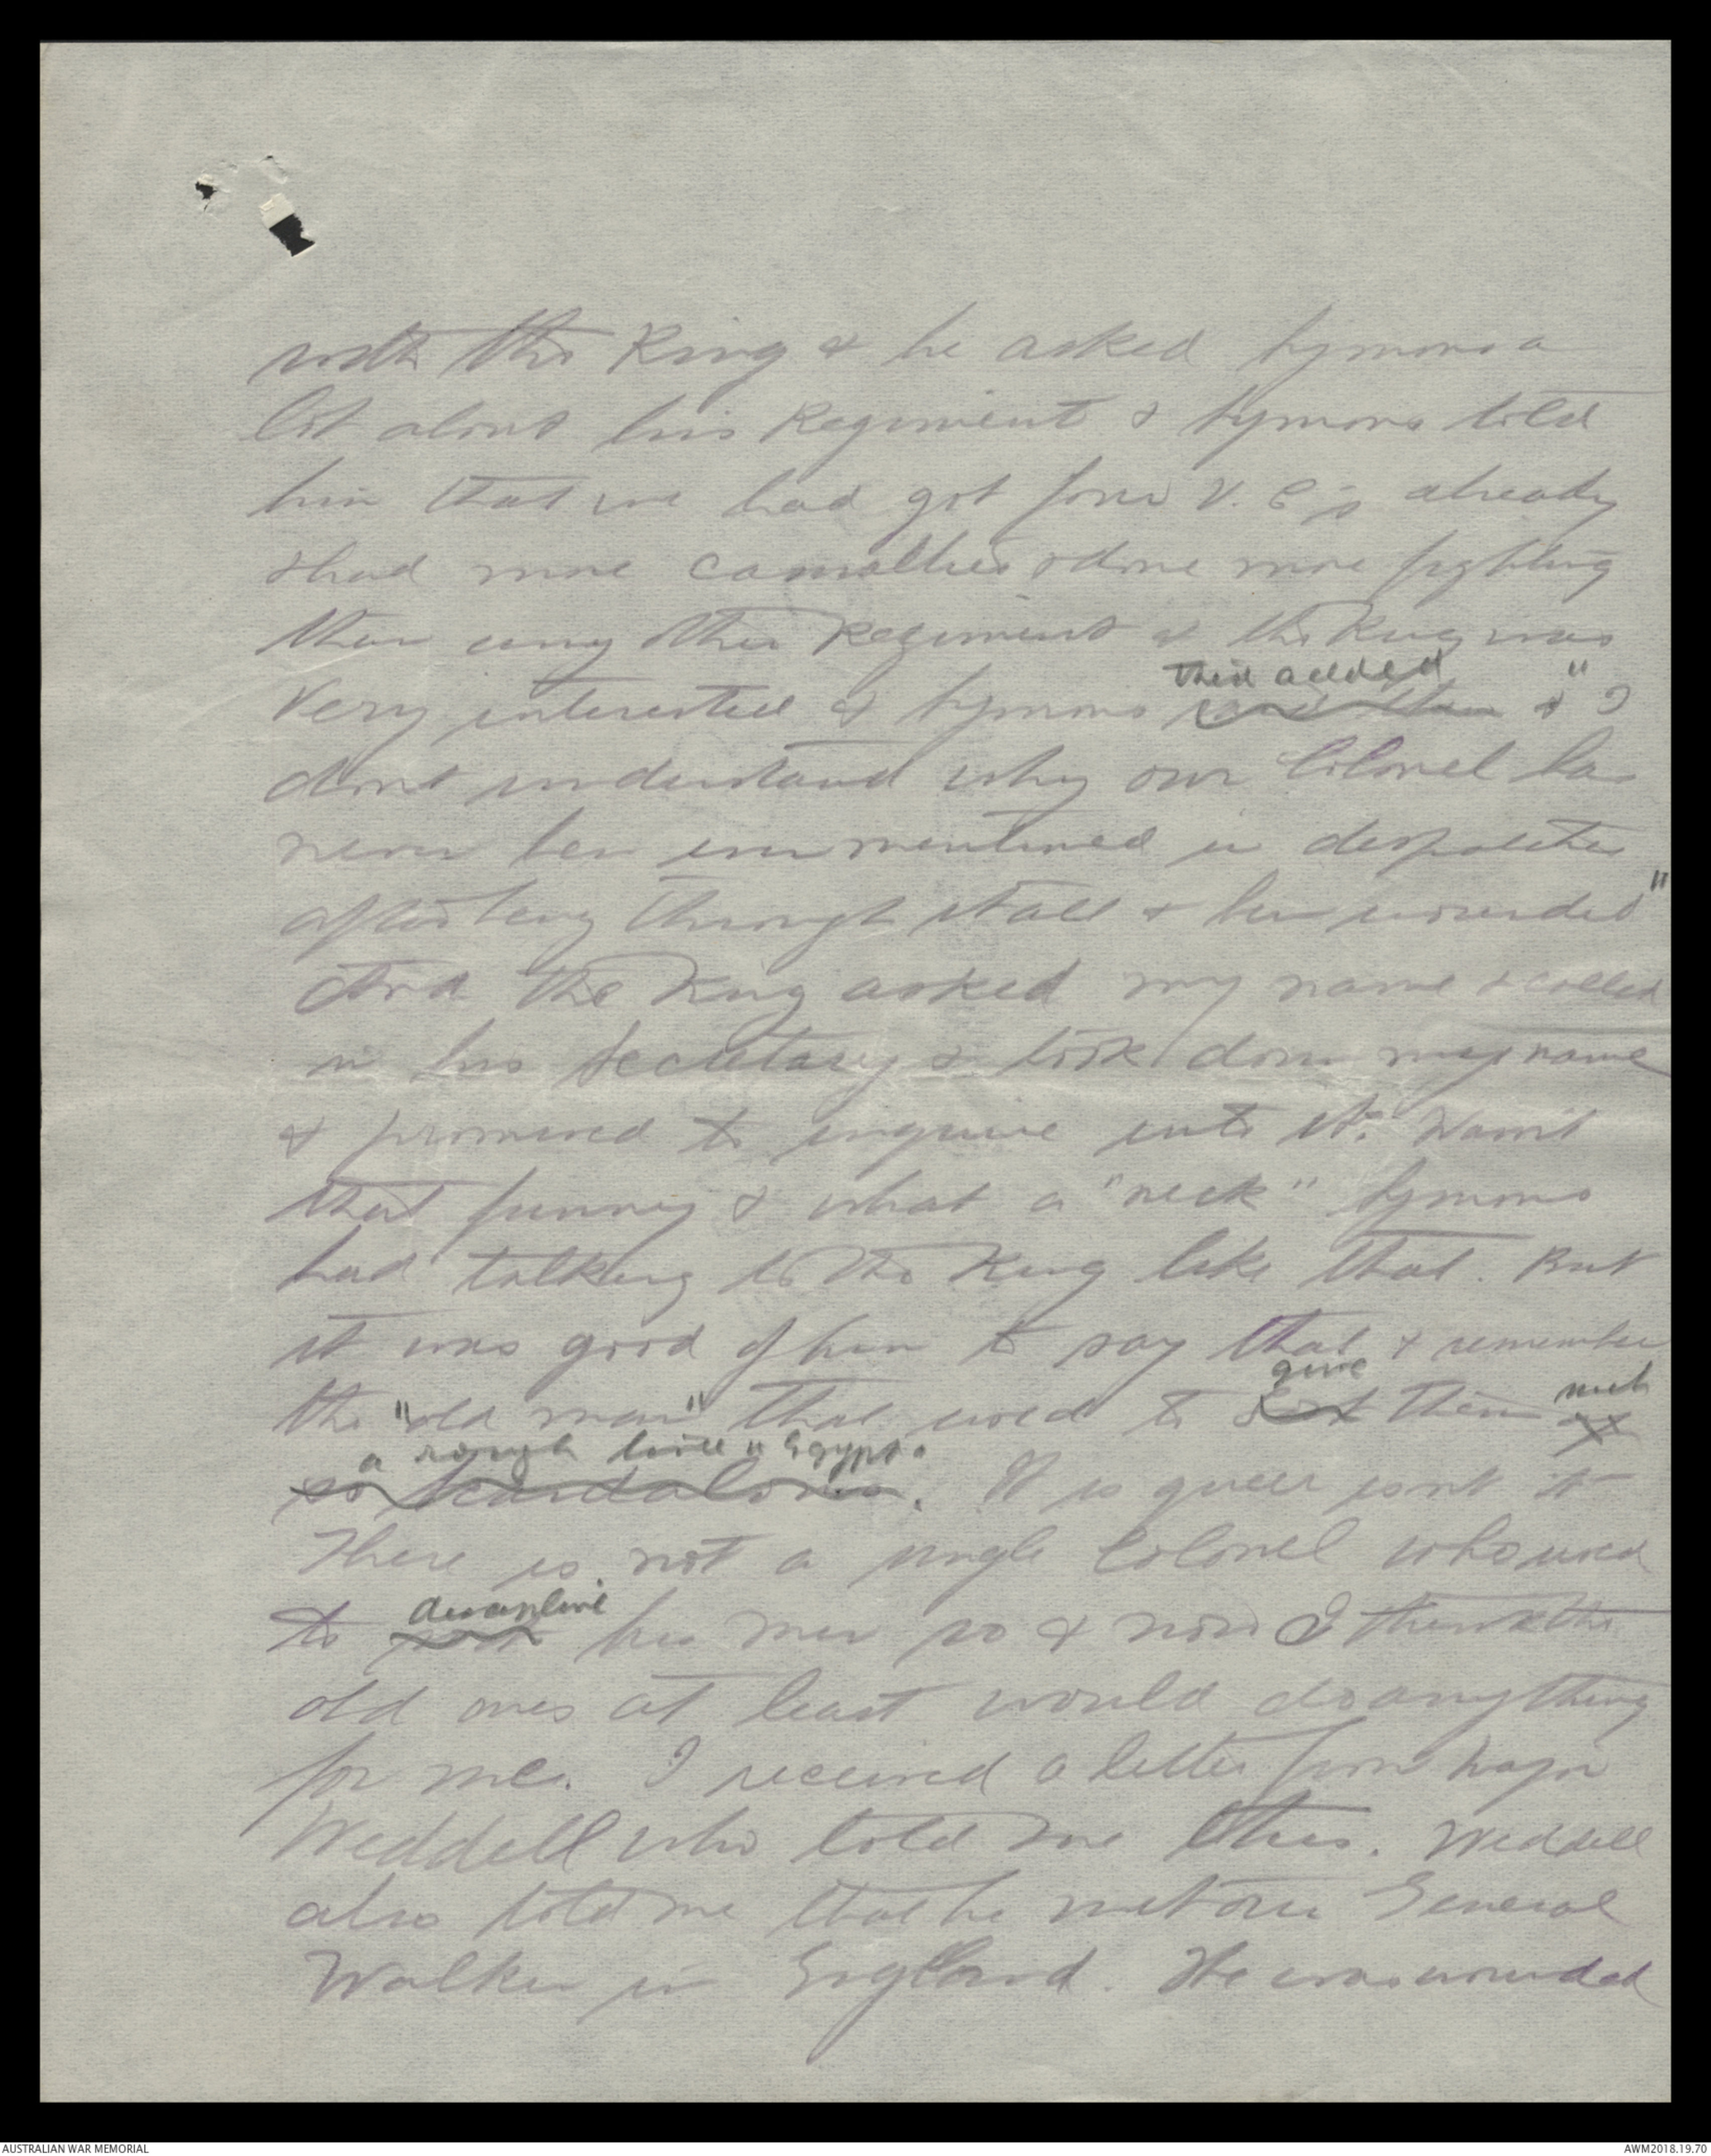 with the King & he asked Symons a
lot about his Regiment & Symons told
him that we had got four V.C's already
& had more casualties & done more fighting
than any other Regiment & the King was
Very interested & Symons then added & " I
dont understand why our Colonel has
never been even mentioned in despatches
after being through it all & been wounded"
And the King asked my name & called
in his Secretary & took down my name
& promised to enquire into it. Wasn't
that funny & what a "neck" Symons
had talking to the King like that. But
it was good of him to say that & remember
the "old man" that used to give them such
a rough time in Egypt. It is queer isnt it
There is not a single Colonel who used
to discipline his men so & now I think the
old ones at least would do anything
for me. I received a letter from Major
Weddell who told me this. Weddell
also told me that he met our General
Walker in England. He was wounded
AUSTRALIAN WAR MEMORIAL
AWM2018.19.70